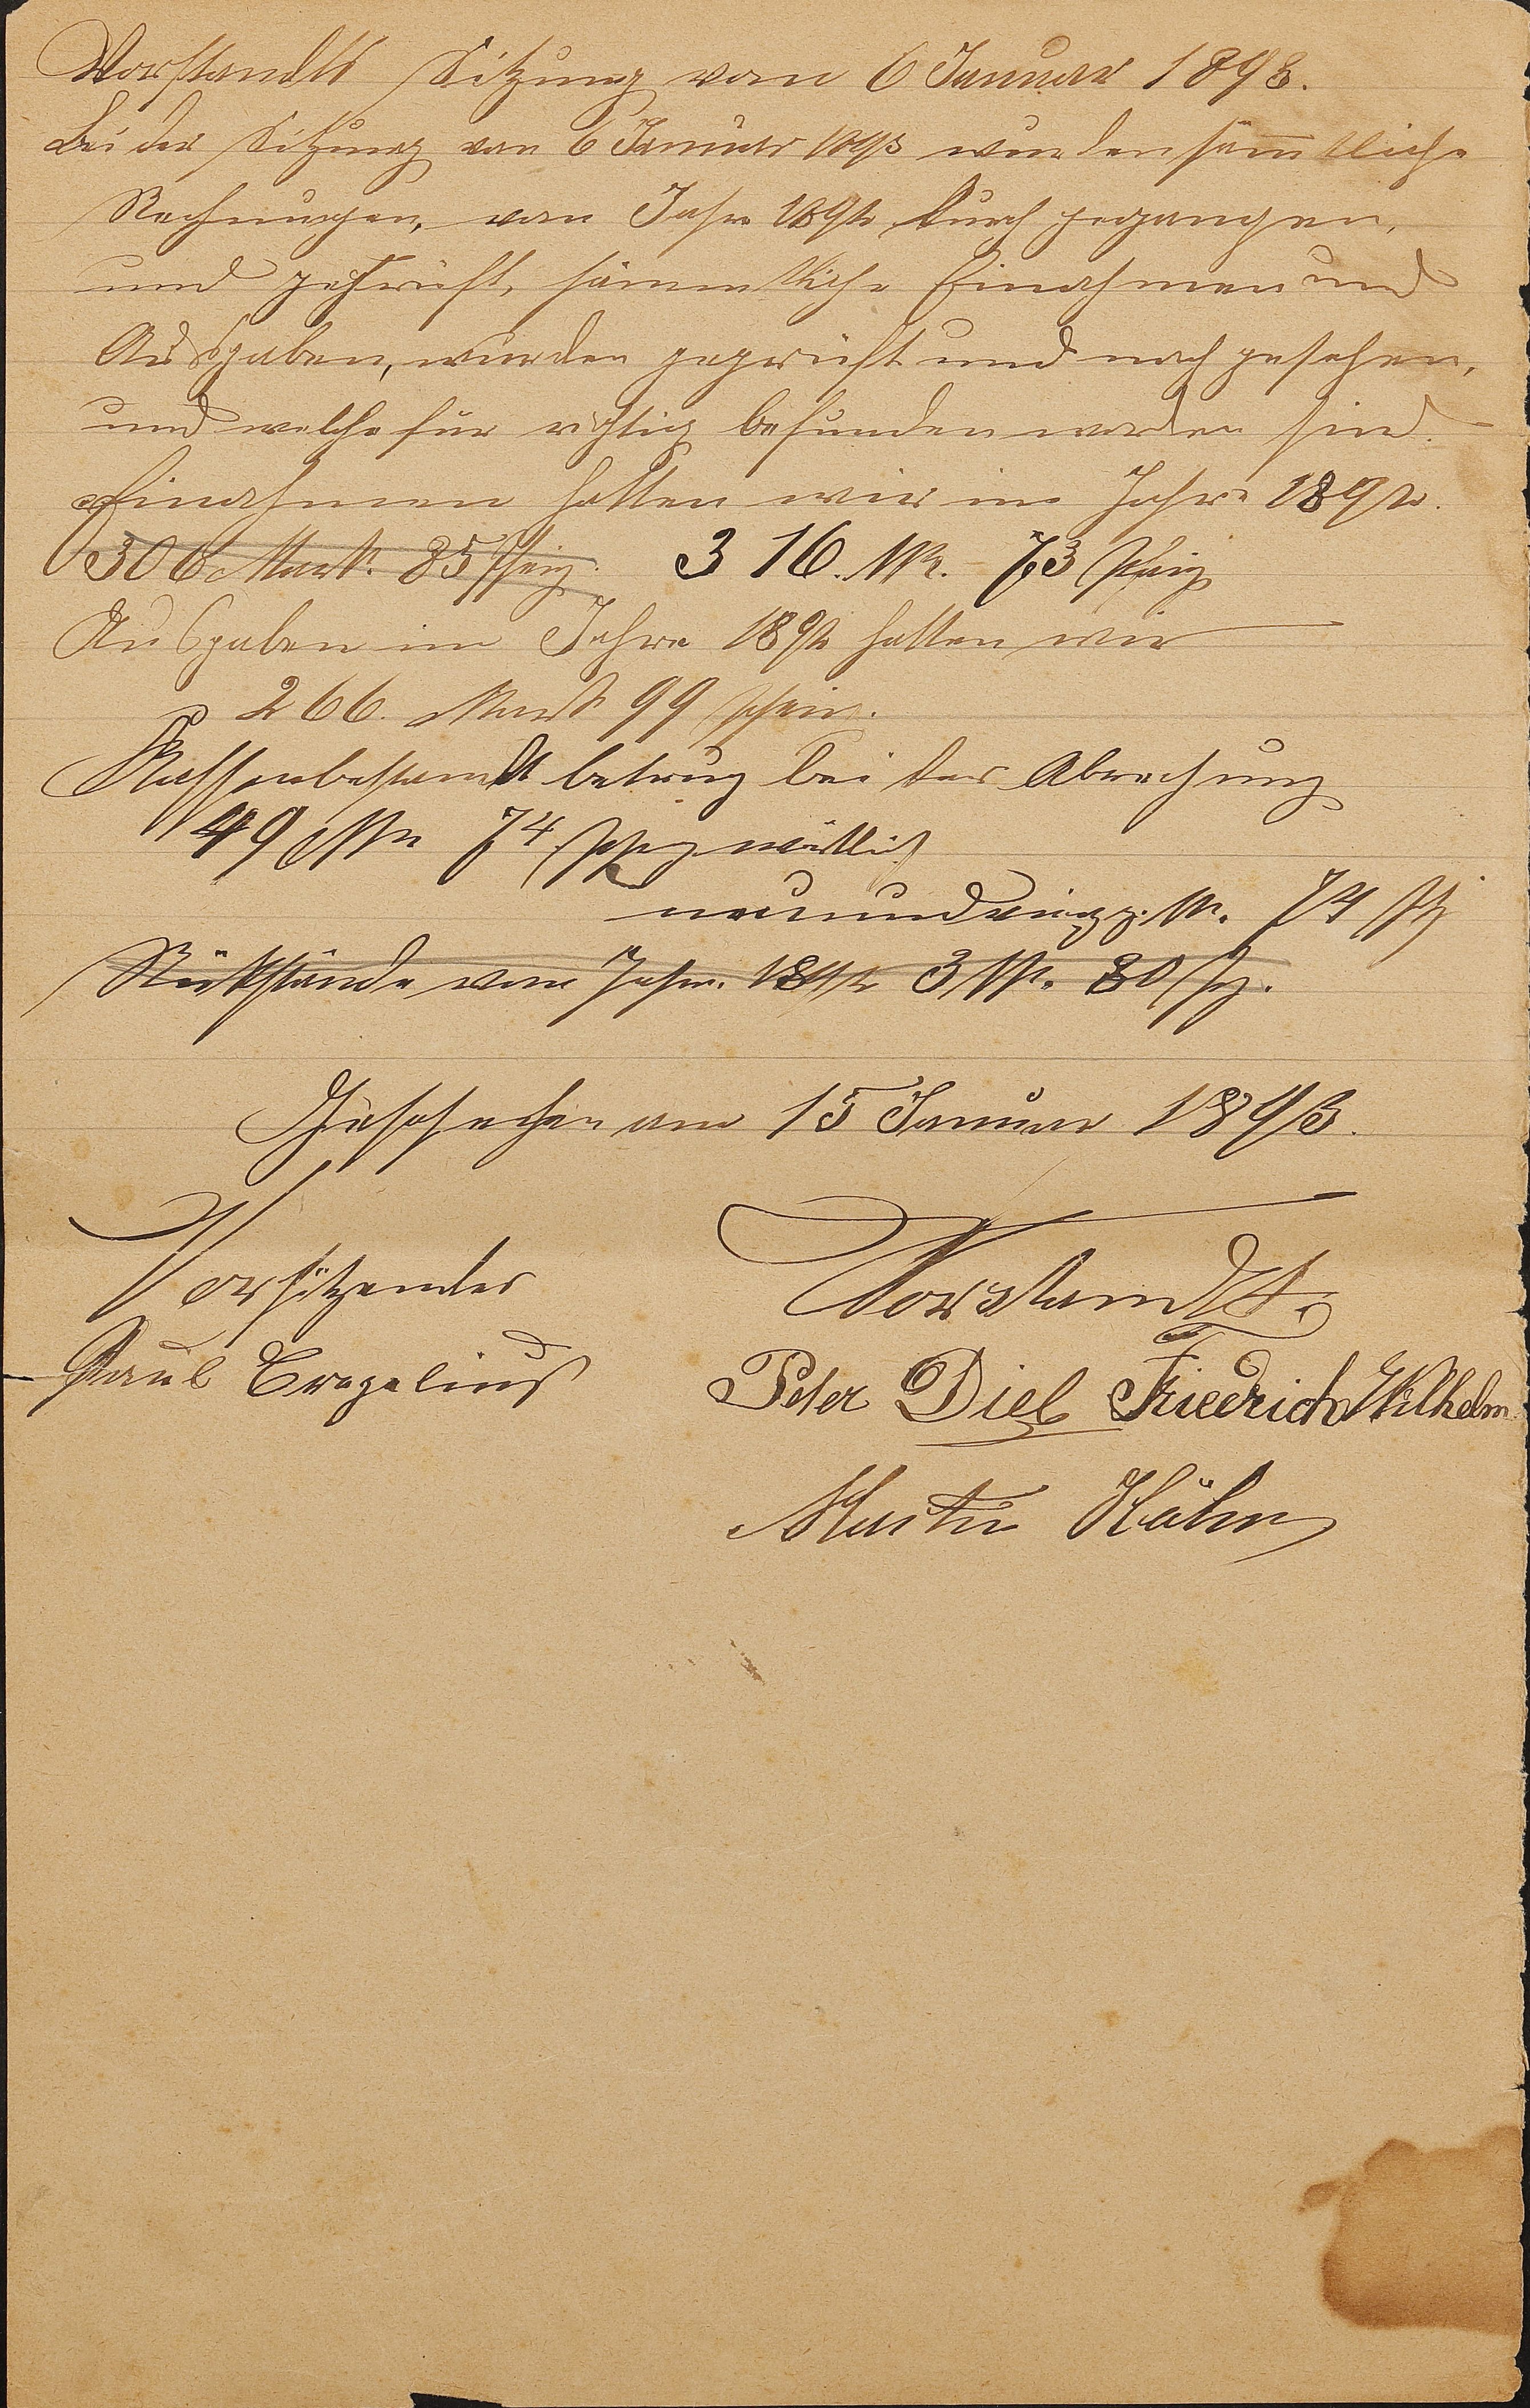 Vorstandts Sitzung vom 6 Januar 1893.
Bei der Sitzung vom 6 Januar 1893 wurden säm̄tliche
Rechnungen, vom Jahr 1892 durch gegangen,
und geprüft, sämmtliche Einahmen und
Ausgaben, wurden geprüft und nach gesehen,
und welche für richtig befunden worden sind.
Einahmen hatten wir im Jahre 1892.
306 Mark. 85 Pfeig. 316. Mk. 73 Pfeig
Ausgaben im Jahre 1892 hatten wir
266. Mark 99 Pfein.
Kassenbestandt betrug bei der Abrechung
49 Mk 74 Pfg wörtlich
neunundvirzig. M. 74 Pf
Rückstände vom Jahre 1892 3 M. 80 Pf.
Geschehen am 15 Januar 1893.
Vorsitzender Vorstandt.
Paul Crezelius Peter Diel Friedrich Wilhelm
Martin Höhn